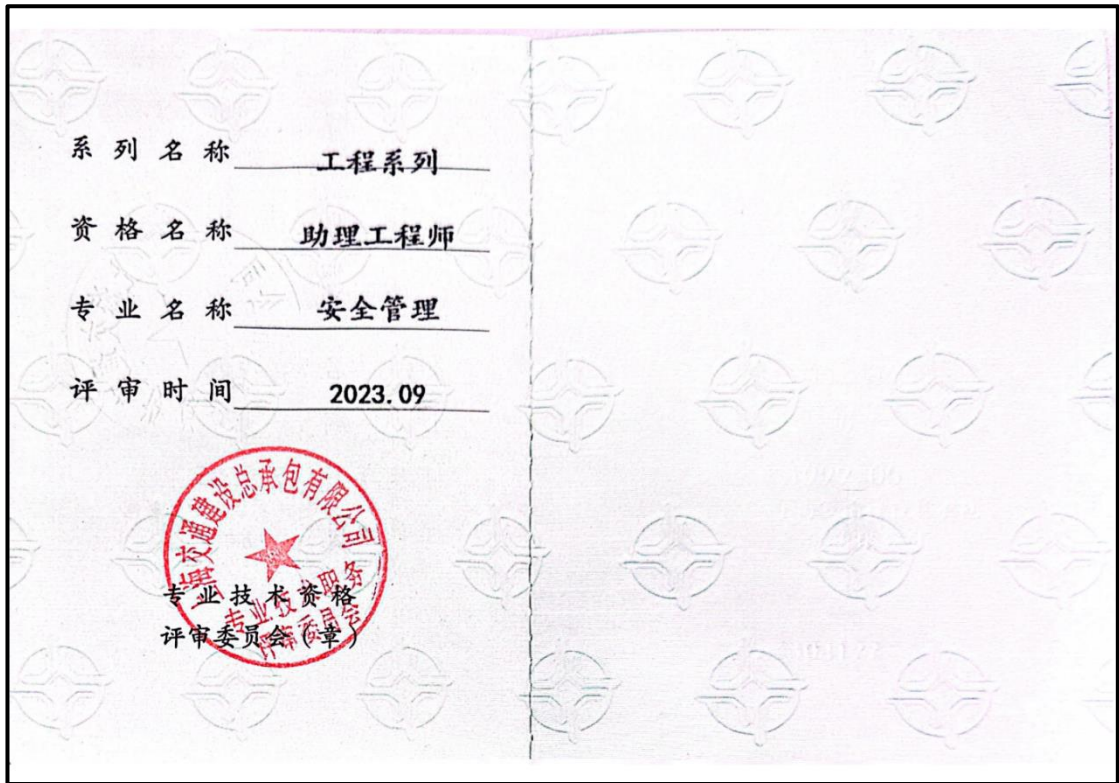 系列名称 工程系列
资格名称 助理工程师
专业名称 安全管理
评审时间 2023.09
上海交通建设总承包有限公司
专业技术职务
评审委员会
专业技术资格
评审委员会(章)